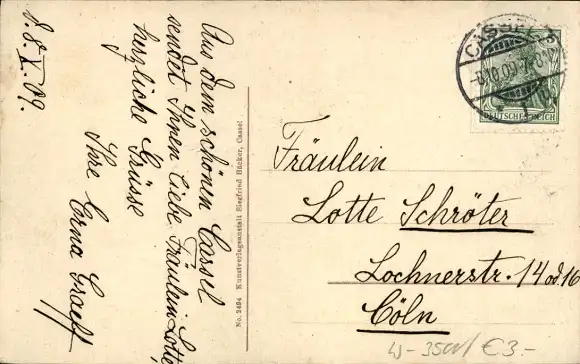 d. 8. X. 09.
Aus dem schönen Cassel
sendet Ihnen liebe Fräulein Lotte,
herzliche Grüsse
Ihre Erna Graeff
No. 2494 Kunstverlagsanstalt Siegfried Bücker, Cassel
CASSEL
DEUTSCHES REICH
Fräulein
Lotte Schröter
Lochnerstr. 14 od. 16
Cöln
€ 3.-